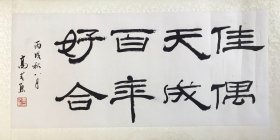 佳偶
天成
百年
好合
丙戌秋八月